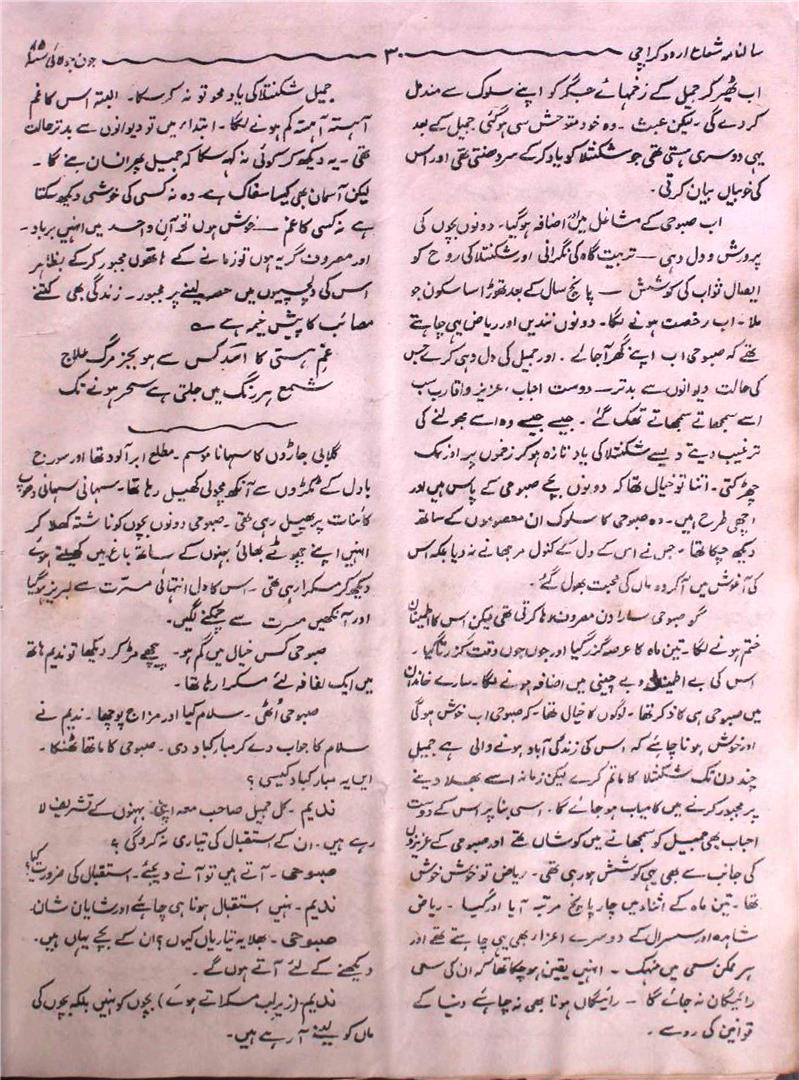 سالنامہ شعاع اردو کراچی
۳۰
جون جولائی
اب ٹھیر کر جمیل کے زخمہائے جگر کو اپنے سلوک سے مندمل
کر دے گی ۔ لیکن عبث ۔ وہ خود متوحش سی ہو گئی جمیل کے بعد
یہی دوسری ہستی تھی جو شکنتلا کو یاد کر کے سر دھنتی تھی اور اس
کی خوبیاں بیان کرتی ۔
اب صبوحی کے مشاغل میں اضافہ ہو گیا ۔ دونوں بچوں کی
پرورش و دل دہی — تربیت گاہ کی نگرانی اور شکنتلا کی روح کو
ایصال ثواب کی کوشش — پانچ سال کے بعد تھوڑا سا سکون جو
ملا ۔ اب رخصت ہونے لگا ۔ دونوں نندیں اور ریاض یہی چاہتے
تھے کہ صبوحی اب اپنے گھر آجائے ۔ اور جمیل کی دل دہی کرے جس
کی حالت دیوانوں سے بدتر — دوست احباب ، عزیز و اقارب سب
اسے سمجھاتے سمجھاتے تھک گئے ۔ جیسے جیسے وہ اسے بھولنے کی
ترغیب دیتے ویسے شکنتلا کی یاد تازہ ہو کر زخموں پر اور نمک
چھڑکتی ۔ اتنا تو خیال تھا کہ دونوں بچے صبوحی کے پاس ہیں اور
اچھی طرح ہیں ۔ وہ صبوحی کا سلوک ان معصوموں کے ساتھ
دیکھ چکا تھا ۔ جس نے اس کے دل کے کنول مرجھانے نہ دیا بلکہ اس
کی آغوش میں آکر وہ ماں کی محبت بھول گئے ۔
گو صبوحی سارا دن مصروف رہا کرتی تھی لیکن اس کا اطمینان
ختم ہونے لگا ۔ تین ماہ کا عرصہ گزر گیا اور جوں جوں وقت گزرتا گیا ۔
اس کی بے اطمینانی و بے چینی میں اضافہ ہونے لگا ۔ سارے خاندان
میں صبوحی ہی کا ذکر تھا ۔ لوگوں کا خیال تھا کہ صبوحی اب خوش ہوگی
اور خوش ہونا چاہئے کہ اس کی زندگی آباد ہونے والی ہے جمیل
چند دن تک شکنتلا کا ماتم کرے لیکن زمانہ اسے بھلا دینے
پر مجبور کرنے میں کامیاب ہو جائے گا ۔ اسی بنا پر اس کے دوست
احباب بھی جمیل کو سمجھانے میں کوشاں تھے اور صبوحی کے عزیزوں
کی جانب سے بھی یہی کوشش ہو رہی تھی ۔ ریاض تو خوش خوش
تھا ۔ تین ماہ کے اثناء میں چار پانچ مرتبہ آیا اور گیا ۔ ریاض
شاہدہ اور سسرال کے دوسرے اعزا ربھی یہی چاہتے تھے اور
ہر ممکن سعی میں منہمک ۔ انہیں یقین ہو چکا تھا کہ ان کی سعی
رائیگاں نہ جائے گا — رائیگاں ہونا بھی نہ چاہئے دنیا کے
قوانین کی رو سے ۔
جمیل شکنتلا کی یاد محو تو نہ کر سکا ۔ البتہ اس کا غم
آہستہ آہستہ کم ہونے لگا ۔ ابتداء میں تو دیوانوں سے بدتر حالت
تھی ۔ یہ دیکھ کر کوئی نہ کہہ سکا کہ جمیل پھر انسان بنے گا ۔
لیکن آسمان بھی کیسا سفاک ہے ۔ وہ نہ کسی کی خوشی دیکھ سکتا
ہے نہ کسی کا غم — خوش ہوں تو آن واحد میں انہیں برباد ۔
اور مصروف گریہ ہوں تو زمانے کے ہاتھوں مجبور کر کے بظاہر
اس کی دلچسپیوں میں حصہ لینے پر مجبور ۔ زندگی بھی کتنے
مصائب کا پیش خیمہ ہے ؎
غم ہستی کا اسد کس سے ہو بجز مرگ علاج
شمع ہر رنگ میں جلتی ہے سحر ہونے تک
گلابی جاڑوں کا سہانا موسم ۔ مطلع ابر آلود تھا اور سورج
بادل کے ٹکڑوں سے آنکھ مچولی کھیل رہا تھا ۔ سہانی سہانی دھوپ
کائنات پر پھیل رہی تھی ۔ صبوحی دونوں بچوں کو ناشتہ کھلا کر
انہیں اپنے چھوٹے بھائی بہنوں کے ساتھ باغ میں کھیلتے ہوئے
دیکھ کر مسکرا رہی تھی ۔ اس کا دل انتہائی مسرت سے لبریز ہو گیا
اور آنکھیں مسرت سے چمکنے لگیں ۔
صبوحی کس خیال میں گم ہو ۔ پیچھے مڑ کر دیکھا تو ندیم ہاتھ
میں ایک لفافہ لئے مسکرا رہا تھا ۔
صبوحی اُٹھی ۔ سلام کیا اور مزاج پوچھا ۔ ندیم نے
سلام کا جواب دے کر مبارکباد دی ۔ صبوحی کا ماتھا ٹھنکا ۔
ایں یہ مبارکباد کیسی ؟
ندیم ۔ کل جمیل صاحب معہ اپنی بہنوں کے تشریف لا
رہے ہیں ۔ ان کے استقبال کی تیاری نہ کرو گی ؟
صبوحی ۔ آتے ہیں تو آنے دیجئے ۔ استقبال کی ضرورت کیا ؟
ندیم ۔ نہیں استقبال ہونا ہی چاہئے اور شایان شان ۔
صبوحی ۔ بھلا یہ تیاریاں کیوں ؟ ان کے بچے یہاں ہیں ۔
دیکھنے کے لئے آتے ہوں گے ۔
ندیم ۔ (زیر لب مسکراتے ہوئے) بچوں کو نہیں بلکہ بچوں کی
ماں کو لینے آ رہے ہیں ۔